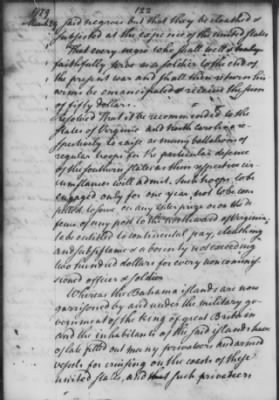 1779 122
March 29 said negroes but that they be cloathed &
subsisted at the expence of the united states
That every negro who shall well &
faithfully serve as a soldier to the end of
the present war and shall then return his
arms be emancipated & receive the sum
of fifty dollars.
Resolved That it be recommended to the
states of Virginia and north carolina re-
spectively to raise as many battalions of
regular troops for the particular defence
of the southern states as their respective cir-
cumstances will admit. Such troops to be
engaged only for one year, not to be com-
pelled to serve on any enterprize or in the de-
fence of any post to the northward of Virginia
to be entitled to continental pay, cloathing
and subsistance & a bounty not exceeding
two hundred dollars for every non commis-
sioned officer & soldier
Whereas the Bahama islands are now
garrisoned by and under the military go-
vernment of the king of great Britain
and the inhabitants of the said islands have
of late fitted out many privateers and armed
vessels for cruising on the coasts of these
united states, and that such privateers